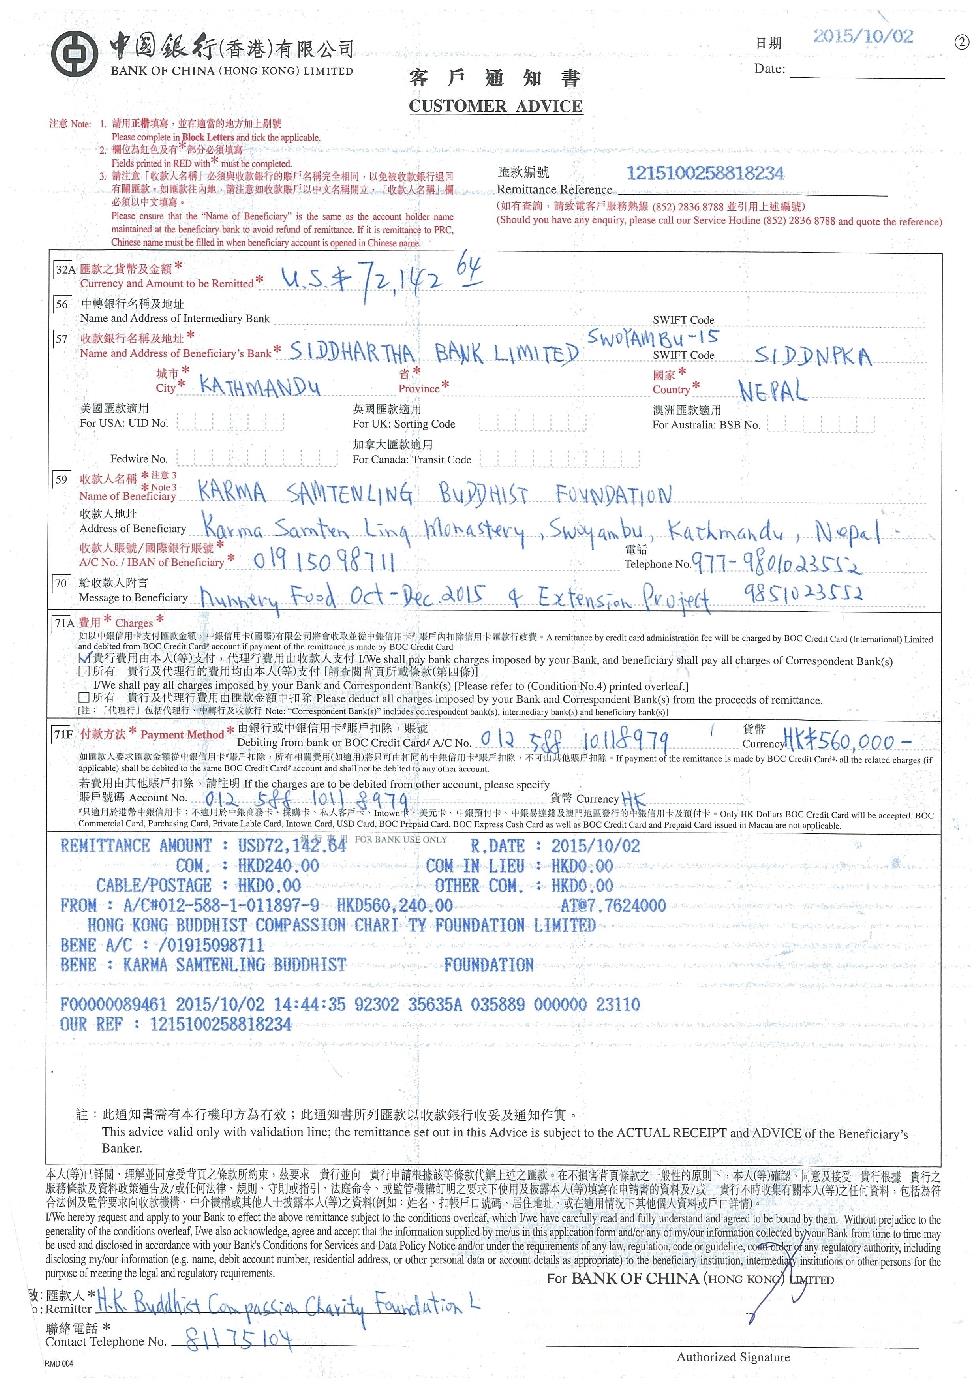 中國銀行(香港)有限公司
BANK OF CHINA (HONG KONG) LIMITED
日期 2015/10/02
Date:
②
客戶通知書
CUSTOMER ADVICE
注意 Note: 1. 請用正楷填寫，並在適當的地方加上剔號
Please complete in Block Letters and tick the applicable.
2. 欄位為紅色及有*部分必須填寫
Fields printed in RED with* must be completed.
3. 請注意「收款人名稱」必須與收款銀行的賬戶名稱完全相同，以免被收款銀行退回
有關匯款。如匯款往內地，請注意如收款賬戶以中文名稱開立，「收款人名稱」欄
必須以中文填寫。
Please ensure that the "Name of Beneficiary" is the same as the account holder name
maintained at the beneficiary bank to avoid refund of remittance. If it is remittance to PRC,
Chinese name must be filled in when beneficiary account is opened in Chinese name.
匯款編號
Remittance Reference 1215100258818234
(如有查詢，請致電客戶服務熱線 (852) 2836 8788 並引用上述編號)
(Should you have any enquiry, please call our Service Hotline (852) 2836 8788 and quote the reference)
32A 匯款之貨幣及金額*
Currency and Amount to be Remitted* U.S.$ 72,142 64
56 中轉銀行名稱及地址
Name and Address of Intermediary Bank SWIFT Code
57 收款銀行名稱及地址* SWOYAMBU-15
Name and Address of Beneficiary's Bank * SIDDHARTHA BANK LIMITED SWIFT Code SIDDNPKA
城市* 省* 國家*
City* KATHMANDU Province* Country* NEPAL
美國匯款適用 英國匯款適用 澳洲匯款適用
For USA: UID No. For UK: Sorting Code For Australia: BSB No.
加拿大匯款適用
Fedwire No. For Canada: Transit Code
59 收款人名稱 *注意3
Name of Beneficiary *Note3 KARMA SAMTENLING BUDDHIST FOUNDATION
收款人地址
Address of Beneficiary Karma Samten Ling Monastery, Swoyambu, Kathmandu, Nepal
收款人賬號/國際銀行賬號* 電話
A/C No. / IBAN of Beneficiary* 01915098711 Telephone No. 977-9801023552
70 給收款人附言
Message to Beneficiary Nunnery Food Oct-Dec.2015 & Extension Project 9851023552
71A 費用* Charges*
A remittance by credit card administration fee will be charged by BOC Credit Card (International) Limited
and debited from BOC Credit Card# account if payment of the remittance is made by BOC Credit Card
貴行費用由本人(等)支付，代理行費用由收款人支付 I/We shall pay bank charges imposed by your Bank, and beneficiary shall pay all charges of Correspondent Bank(s)
所有 貴行及代理行的費用均由本人(等)支付 [請查閱背頁所載條款(第四條)]
I/We shall pay all charges imposed by your Bank and Correspondent Bank(s) [Please refer to (Condition No.4) printed overleaf.]
所有 貴行及代理行費用由匯款金額中扣除 Please deduct all charges imposed by your Bank and Correspondent Bank(s) from the proceeds of remittance.
[註：「代理行」包括代理行、中轉行及收款行 Note: "Correspondent Bank(s)" includes correspondent bank(s), intermediary bank(s) and beneficiary bank(s)]
71F 付款方法* Payment Method* 由銀行或中銀信用卡#賬戶扣除，賬號 貨幣
Debiting from bank or BOC Credit Card# A/C No. 012 588 10118979 Currency HK$560,000-
If payment of the remittance is made by BOC Credit Card#, all the related charges (if
applicable) shall be debited to the same BOC Credit Card# account and shall not be debited to any other account.
若費用由其他賬戶扣除，請註明 If the charges are to be debited from other account, please specify
賬戶號碼 Account No. 012 588 10118979 貨幣 Currency HK
Only HK Dollars BOC Credit Card will be accepted. BOC
Commercial Card, Purchasing Card, Private Lable Card, Intown Card, USD Card, BOC Prepaid Card, BOC Express Cash Card as well as BOC Credit Card and Prepaid Card issued in Macau are not applicable.
銀行專用 FOR BANK USE ONLY
REMITTANCE AMOUNT : USD72,142.64 R.DATE : 2015/10/02
COM. : HKD240.00 COM IN LIEU : HKD0.00
CABLE/POSTAGE : HKD0.00 OTHER COM. : HKD0.00
FROM : A/C#012-588-1-011897-9 HKD560,240.00 AT@7.7624000
HONG KONG BUDDHIST COMPASSION CHARI TY FOUNDATION LIMITED
BENE A/C : /01915098711
BENE : KARMA SAMTENLING BUDDHIST FOUNDATION
F00000089461 2015/10/02 14:44:35 92302 35635A 035889 000000 23110
OUR REF : 1215100258818234
註：此通知書需有本行機印方為有效；此通知書所列匯款以收款銀行收妥及通知作實。
This advice valid only with validation line; the remittance set out in this Advice is subject to the ACTUAL RECEIPT and ADVICE of the Beneficiary's
Banker.
I/We hereby request and apply to your Bank to effect the above remittance subject to the conditions overleaf, which I/we have carefully read and fully understand and agreed to be bound by them. Without prejudice to the
generality of the conditions overleaf, I/We also acknowledge, agree and accept that the information supplied by me/us in this application form and/or any of my/our information collected by your Bank from time to time may
be used and disclosed in accordance with your Bank's Conditions for Services and Data Policy Notice and/or under the requirements of any law, regulation, code or guideline, court order or any regulatory authority, including
disclosing my/our information (e.g. name, debit account number, residential address, or other personal data or account details as appropriate) to the beneficiary institution, intermediary institutions or other persons for the
purpose of meeting the legal and regulatory requirements.
For BANK OF CHINA (HONG KONG) LIMITED
致: 匯款人*
To: Remitter H.K. Buddhist Compassion Charity Foundation L
聯絡電話*
Contact Telephone No. 81175104
Authorized Signature
RMD 004